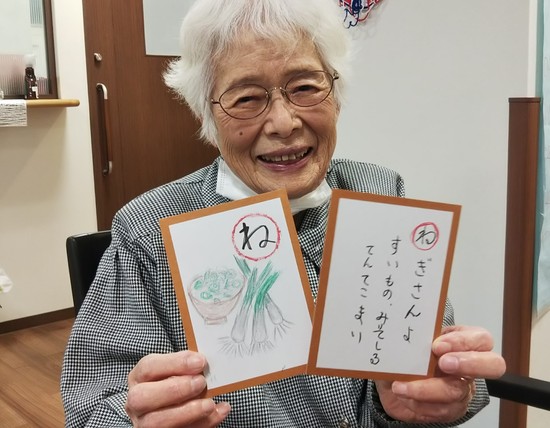 ね
ねぎさんよ
すいもの、みそしる
てんてこまい